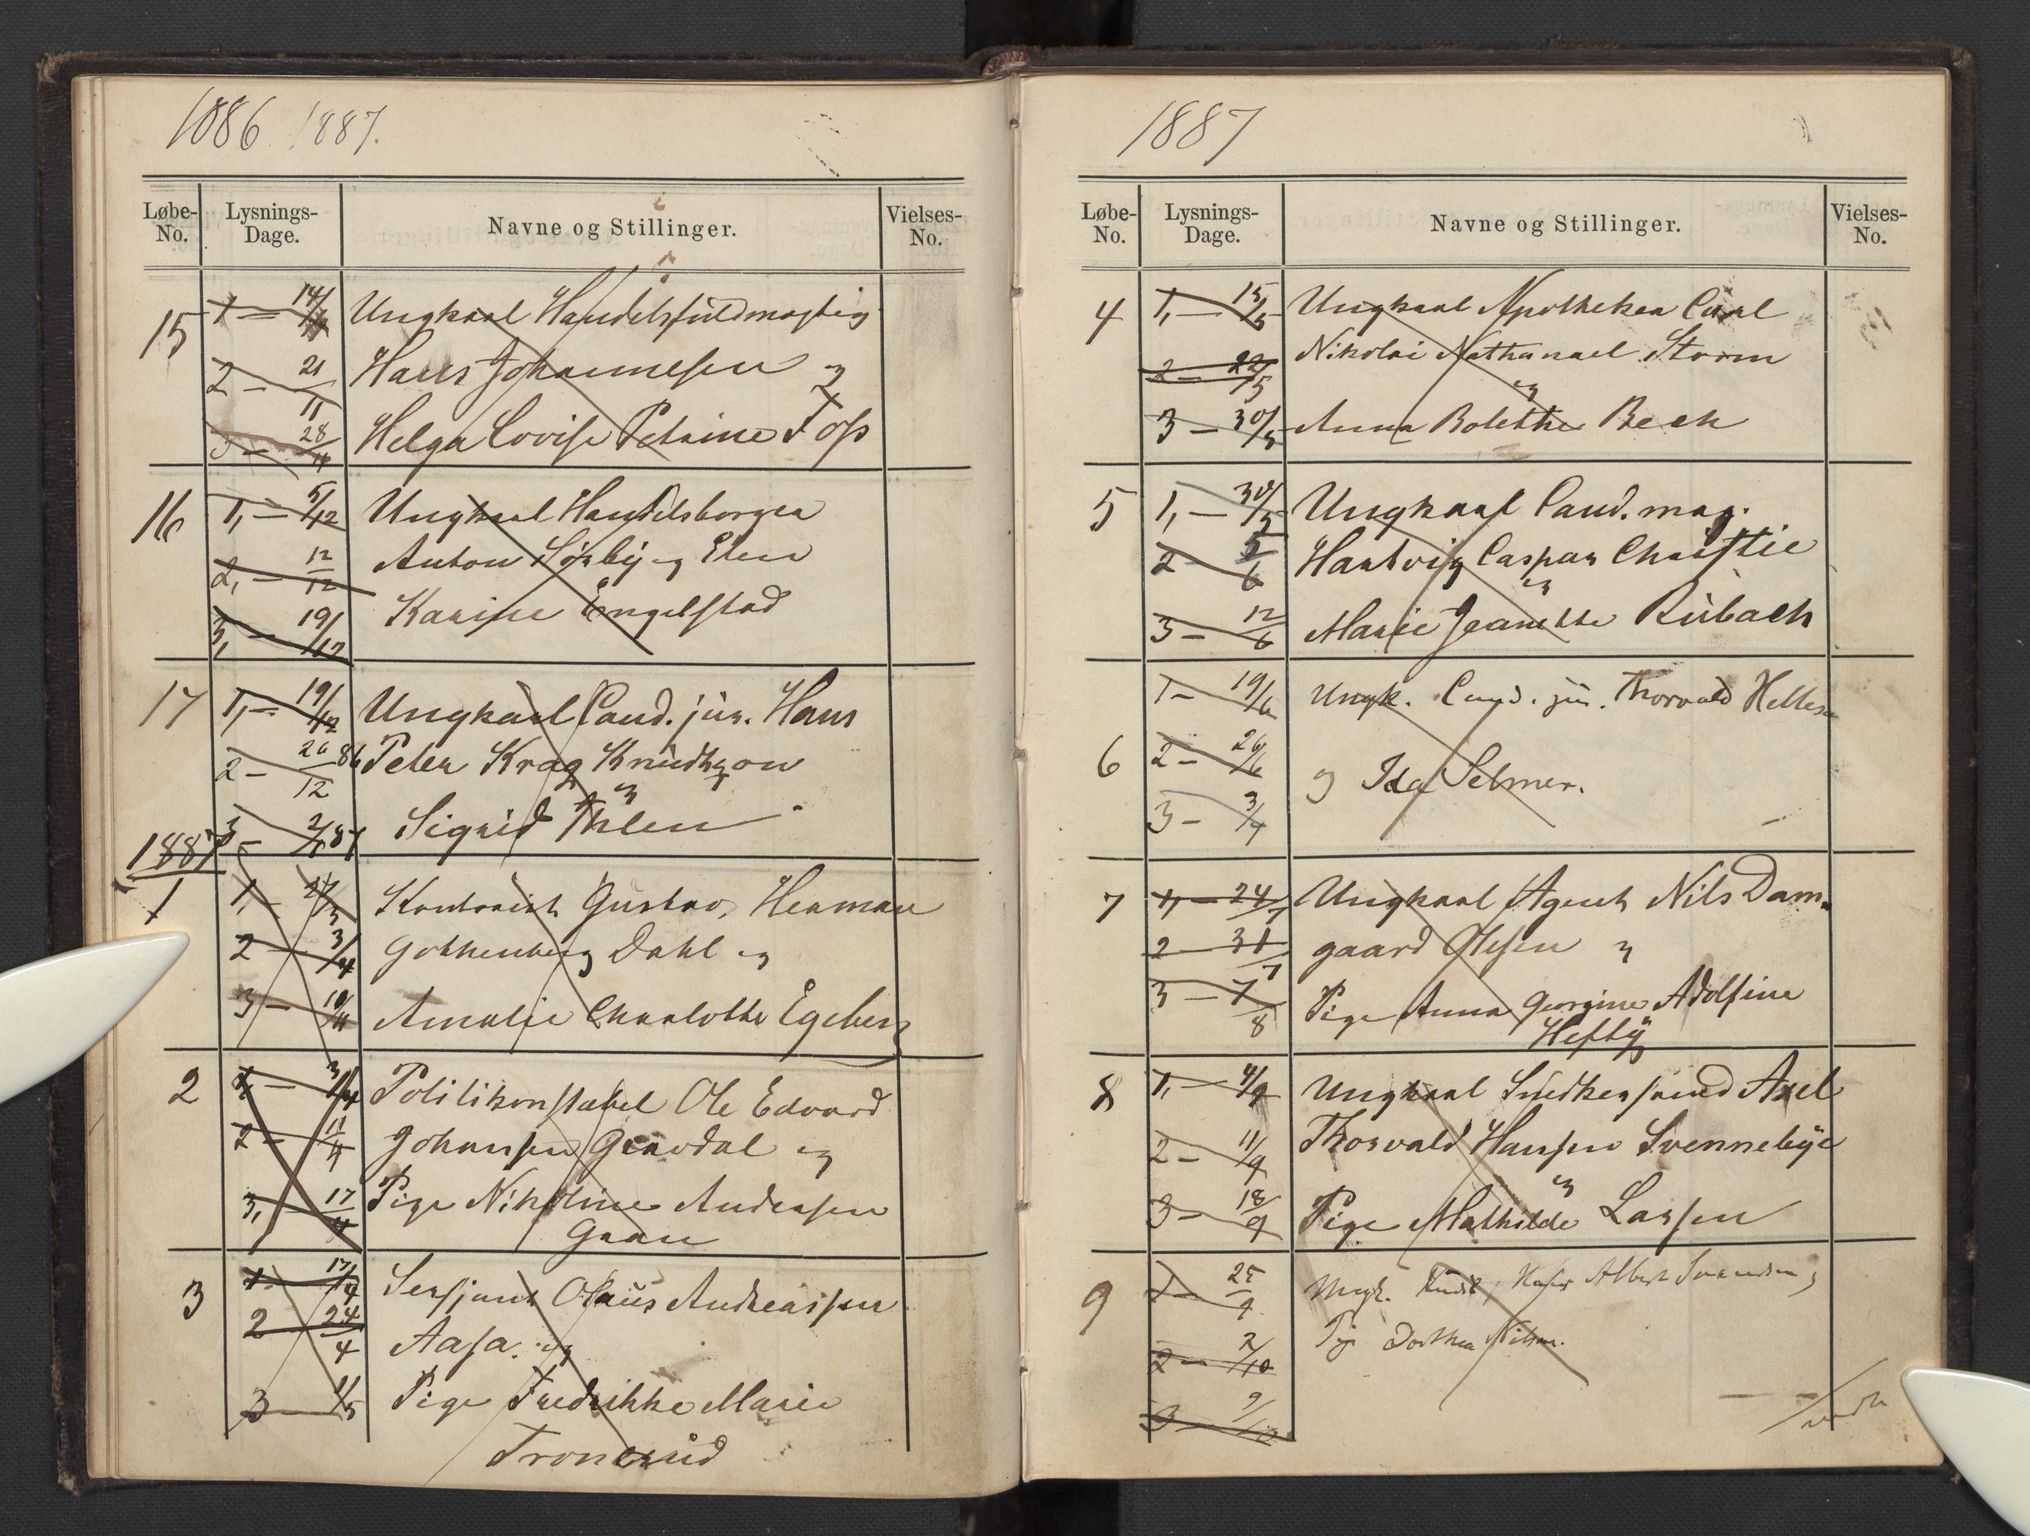 1886 1887.
Løbe-No. Lysnings-Dage. Navne og Stillinger. Vielses-No.
15 1 — 14/11 Ungkaal Handelsfuldmægtig
2 — 21/11 Hans Johannesen og
3 — 28/11 Helga Lovise Petrine Foss
16 1, — 5/12 Ungkaal Handelsborger
2, — 12/12 Anton Sørby og Elen
3, — 19/12 Karine Engelstad
17 1, — 19/12 Ungkaal Cand. jur. Hans
2 — 26/12 86 Peter Krag Knudtzon
og
3 — 2/1 87 Sigrid Thlen
1887
1 1, — 27/3 Kontorist Gustav Herman
2 — 3/4 Gothenberg Dahl og
3 — 10/4 Amalie Charlotte Egeberg
2 1 — 3/4 Politikonstabel Ole Edvard
2 — 11/4 Johansen Gravdal og
3, — 17/4 Pige Nikoline Andersen
Gran
3 1 — 17/4 Sersjant Olaus Andreassen
2 24/4 Aasa. og
3 — 1/5 Pige Fredrikke Marie
Tronsrud
1887
Løbe-No. Lysnings-Dage. Navne og Stillinger. Vielses-No.
4 1, — 15/5 Ungkaal Apotheker Carl
2 — 22/5 Nikolai Nathanael Storm
og
3 — 30/5 Anna Bolette Bech
5 1, — 30/5 Ungkaal Cand. mag.
2 — 5/6 Hartvig Caspar Christie
og
3 — 12/6 Marie Jeanette Rubach
1 — 19/6 Ungk. Cand. jur. Thorvald Hellesen
6 2 — 26/6 og Ida Selmer.
3 — 3/7
7 1, — 24/7 Ungkaal Agent Nils Dam-
2 — 31/7 gaard Olesen og
3 — 7/8 Pige Anna Georgine Adolfine
Hefty
8 1, — 4/9 Ungkaal Snedkersvend Axel
2 — 11/9 Thorvald Hansen Svennebye
og
3 — 18/9 Pige Mathilde Larsen
9 1 — 25/9 Ungk. Albert Svendsen og
2 — 2/10 Pige Dorthea Nilsen.
3 — 9/10